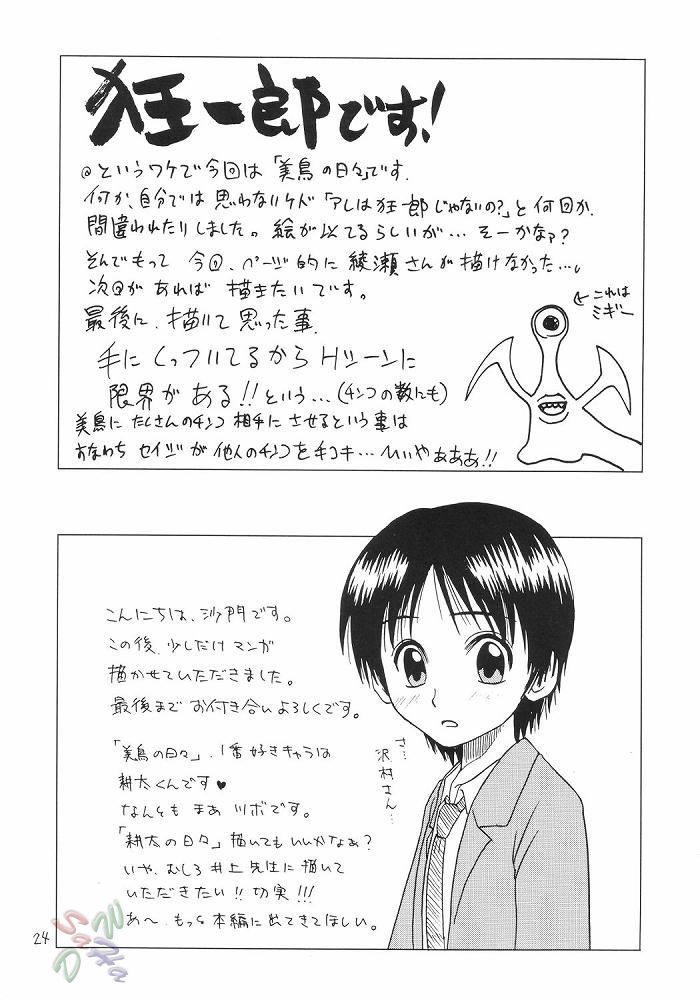 狂一郎です!
@というワケで今回は「美鳥の日々」です.
何か、自分では思わないケド「アレは狂一郎じゃないの?」と何回か、
間違われたりしました。絵が似てるらしいが…そーかなァ?
そんでもって 今回、ページ的に綾瀬さんが描けなかった…。
次回があれば 描きたいです。
最後に、描いて思った事.
手にくっついてるからHシーンに
限界がある!!という…(チンコの数にも)
美鳥にたくさんのチンコ相手にさせるという事は
すなわち セイジが他人のチンコを手コキ…いいやぁああ!!
←これは
ミギー
こんにちは、沙門です。
この後、少しだけマンガ
描かせていただきました。
最後まで お付き合いよろしくです。
「美鳥の日々」、1番好きキャラは
耕太くんです♥
なんとも まあ ツボです。
「耕太の日々」描いてもいいかなぁ?
いや、むしろ 井上先生に描いて
いただきたい!! 切実!!!
あ〜、もっと本編に出てきてほしい。
さ…
沢村さん…
24